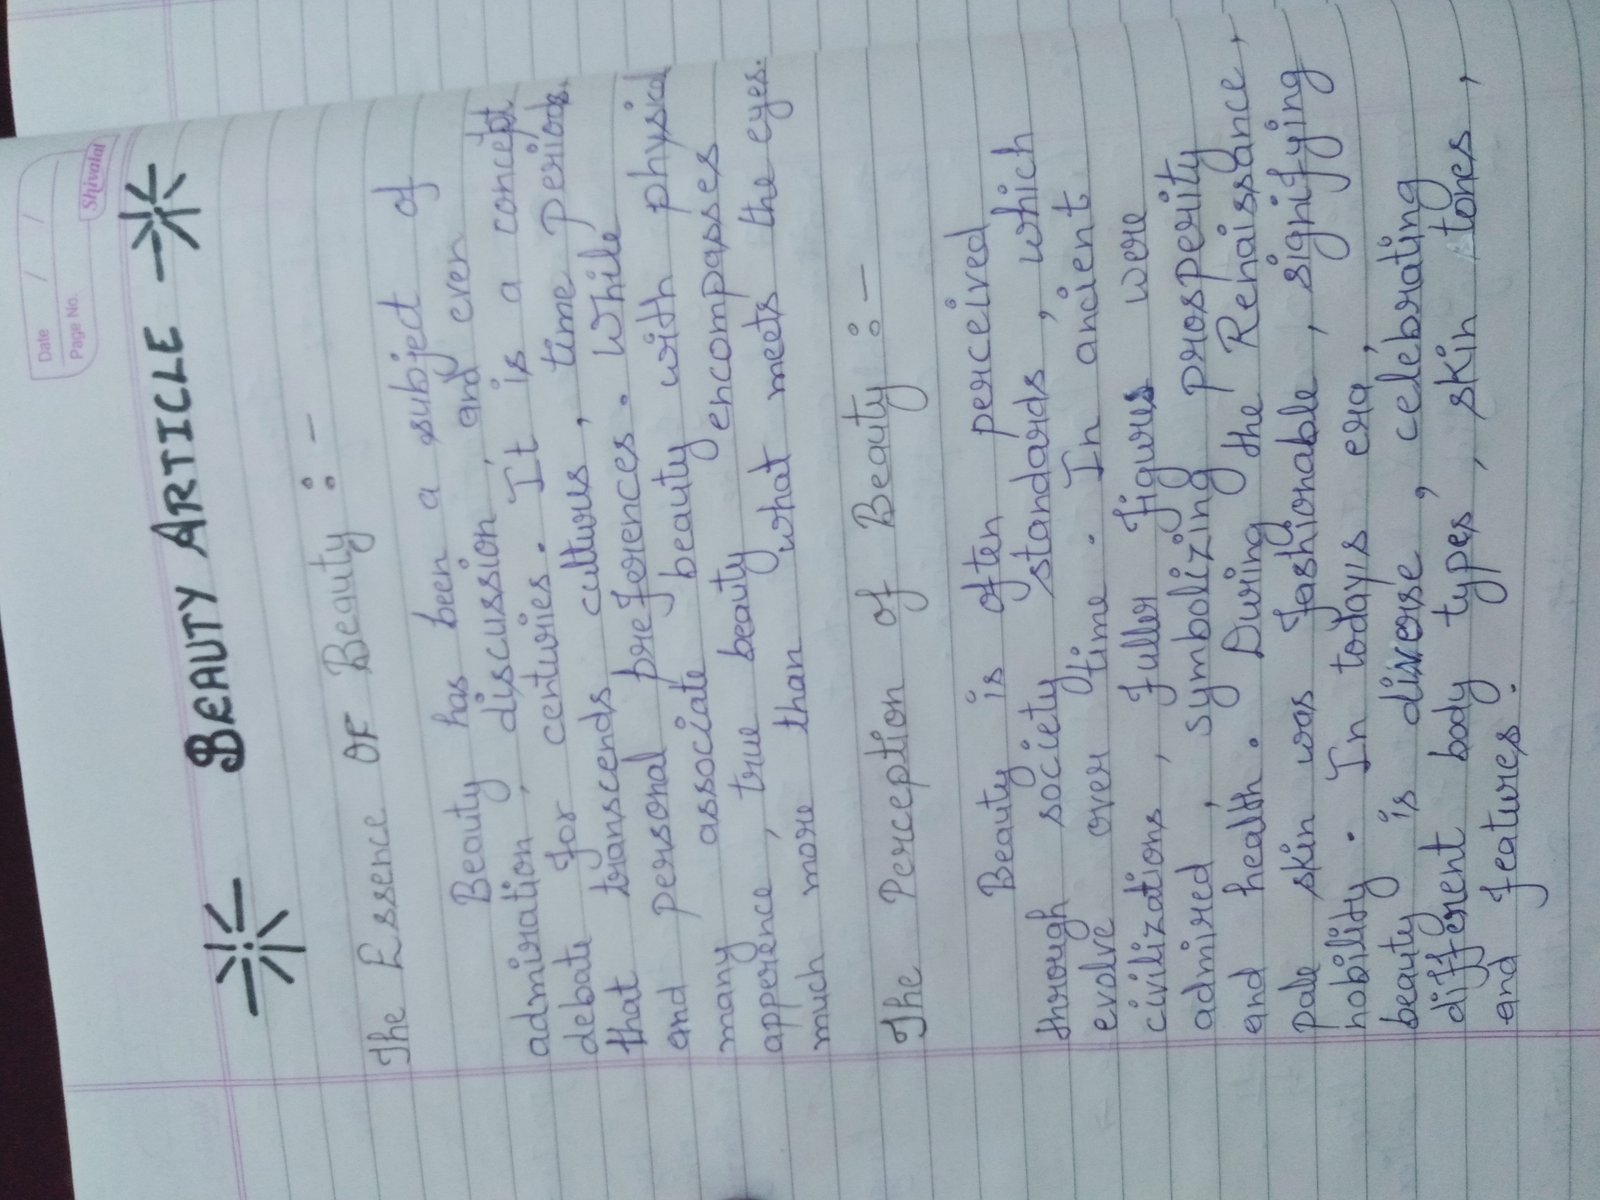 Date / /
Page No.
Shivalal
BEAUTY ARTICLE
The Essence OF Beauty :-
Beauty has been a subject of
admiration, discussion, and even
debate for centuries. It is a concept
that transcends cultures, time periods,
and personal preferences. While
many associate beauty with physical
apperence, true beauty encompasses
much more than what meets the eyes.
The Perception of Beauty :-
Beauty is often perceived
through society standards, which
evolve over time. In ancient
civilizations, fuller figures were
admired, symbolizing prosperity
and health. During the Renaissance,
pale skin was fashionable, signifying
nobility. In today's era,
beauty is diverse, celebrating
different body types, skin tones,
and features.